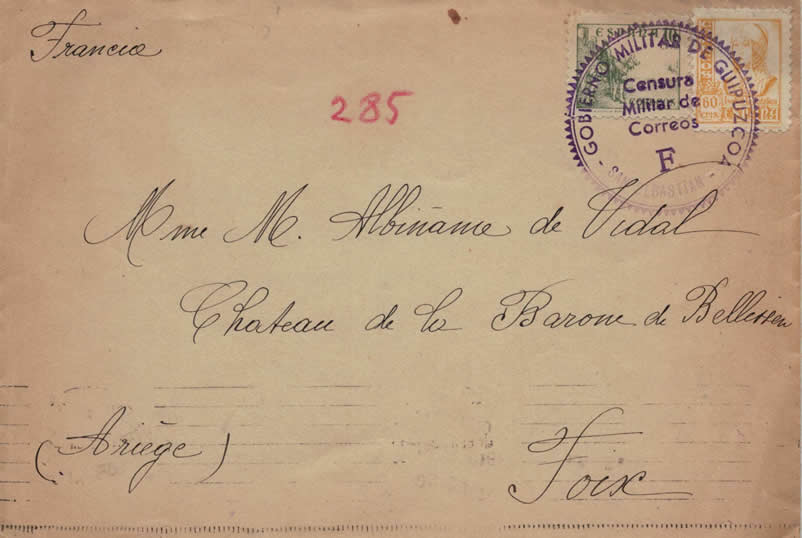 Francia
285
ESPAÑA
GOBIERNO MILITAR DE GUIPUZCOA
Censura
Militar de
Correos
F
SAN SEBASTIAN
60
CTS
Mme M. Albiñame de Vidal
Chateau de la Barone de Bellissen
(Ariège)
Foix